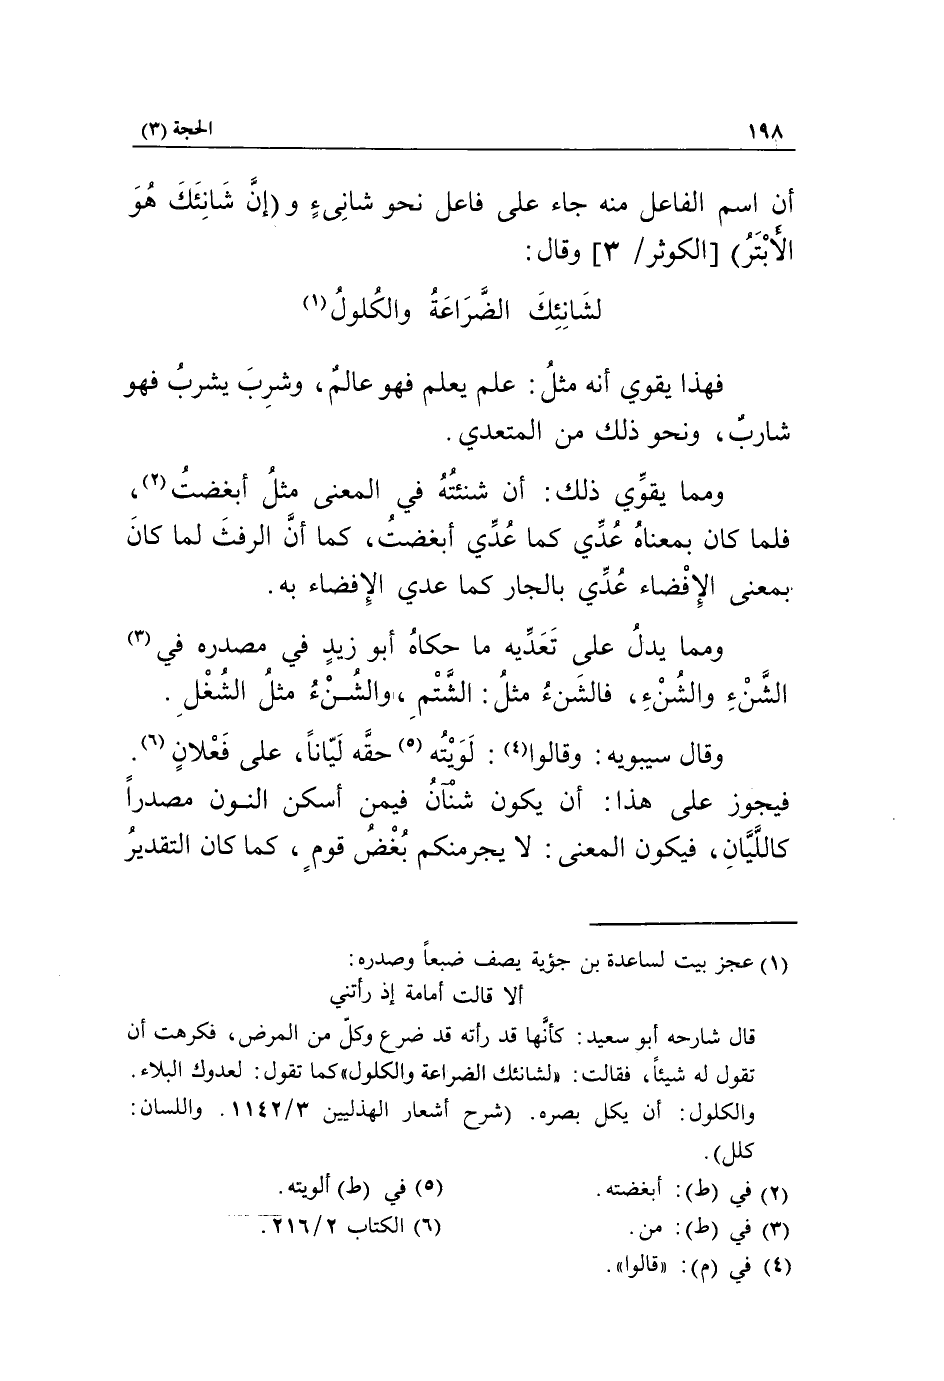 ١٩٨ الحجة (٣)
أن اسم الفاعل منه جاء على فاعل نحو شانِىءٍ و (إنَّ شَانِئَكَ هُوَ
الأَبْتَرُ) [الكوثر/ ٣] وقال:
لشَانِئِكَ الضَّرَاعَةُ والكُلولُ(١)
فهذا يقوي أنه مثلُ: علم يعلم فهو عالمٌ، وشرِبَ يشربُ فهو
شاربٌ، ونحو ذلك من المتعدي.
ومما يقوِّي ذلك: أن شنئتُهُ في المعنى مثلُ أبغضتُ(٢)،
فلما كان بمعناهُ عُدِّي كما عُدِّي أبغضتُ، كما أنَّ الرفثَ لما كانَ
بمعنى الإفْضاء عُدِّي بالجار كما عدي الإفضاء به.
ومما يدلُ على تَعَدِّيه ما حكاهُ أبو زيدٍ في مصدره في(٣)
الشَّنْءِ والشُنْءِ، فالشَنءُ مثلُ: الشَّتْمِ، والشُنْءُ مثلُ الشُغْلِ.
وقال سيبويه: وقالوا(٤): لَوَيْتُه(٥) حقَّه لَيّاناً، على فَعْلانٍ(٦).
فيجوز على هذا: أن يكون شنْآنُ فيمن أسكن النون مصدراً
كاللَّيَّانِ، فيكون المعنى: لا يجرمنكم بُغْضُ قومٍ، كما كان التقديرُ
(١) عجز بيت لساعدة بن جؤية يصف ضبعاً وصدره:
ألا قالت أمامة إذ رأتني
قال شارحه أبو سعيد: كأنَّها قد رأته قد ضرع وكلّ من المرض، فكرهت أن
تقول له شيئاً، فقالت: «لشانئك الضراعة والكلول» كما تقول: لعدوك البلاء.
والكلول: أن يكل بصره. (شرح أشعار الهذليين ١١٤٢/٣. واللسان:
كلل).
(٢) في (ط): أبغضته. (٥) في (ط) ألويته.
(٣) في (ط): من. (٦) الكتاب ٢١٦/٢.
(٤) في (م): «قالوا».